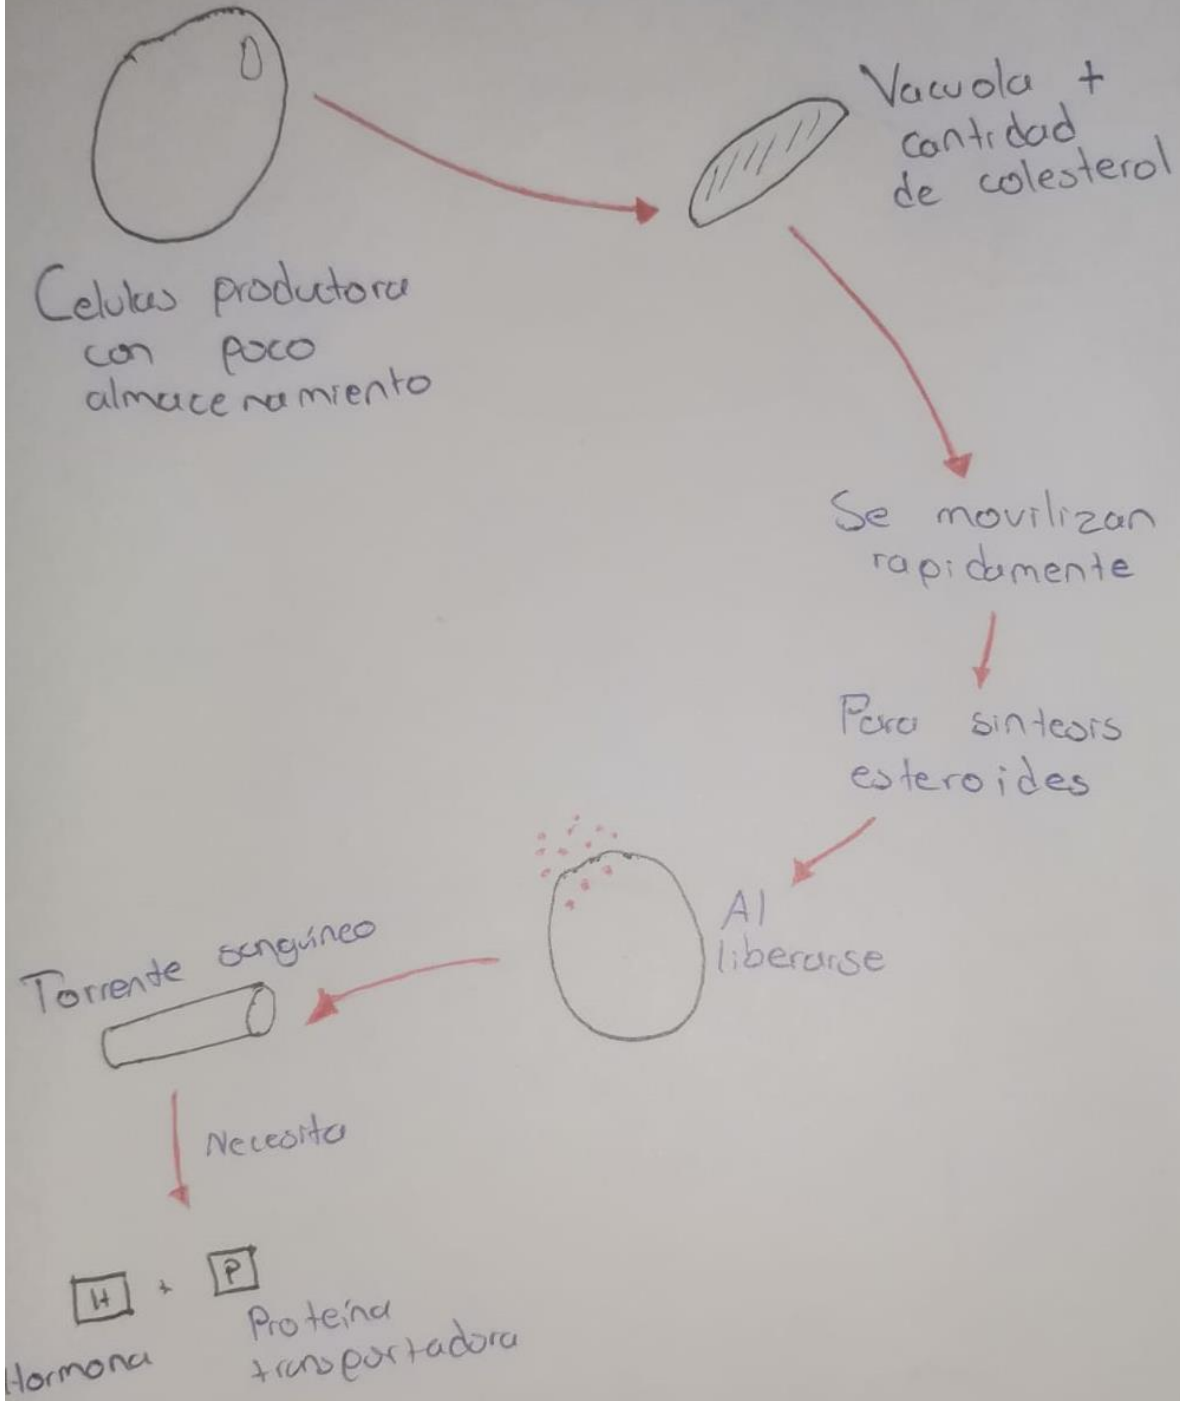 Celulas productora
con poco
almacenamiento
Vacuola +
cantidad
de colesterol
Se movilizan
rapidamente
Para sintesis
esteroides
Al
liberarse
Torrente sanguíneo
Necesita
H + P
Hormona
Proteína
transportadora